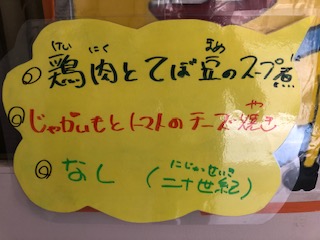 けい にく まめ に
◎鶏肉とてぼ豆のスープ煮
や
◎じゃがいもとトマトのチーズ焼き
にじゅっせいき
◎なし (二十世紀)